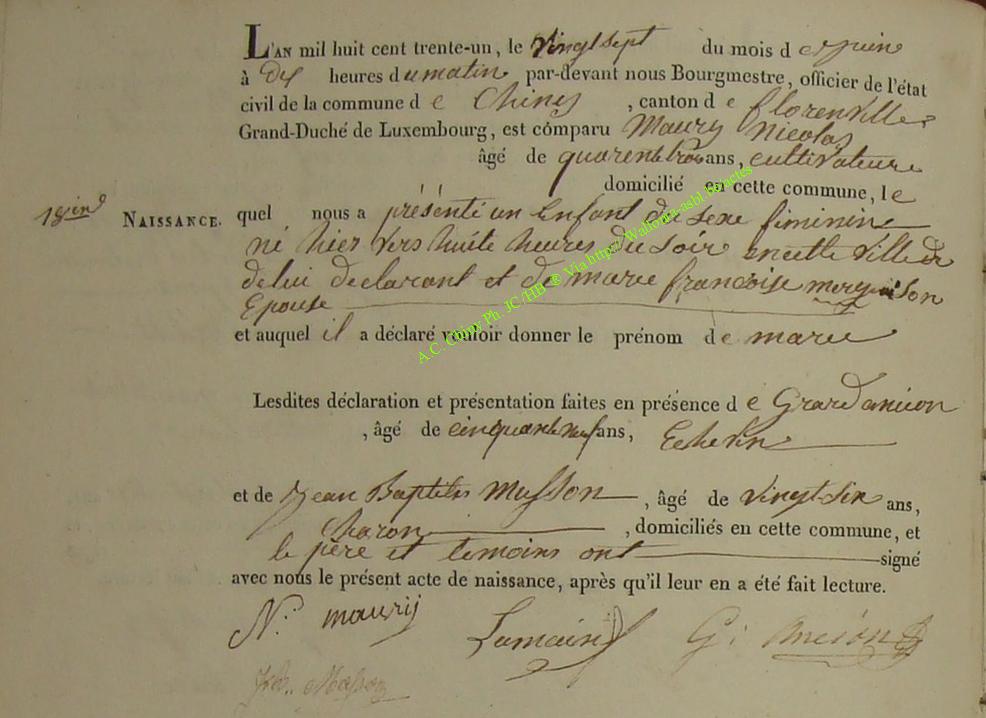 L'AN mil huit cent trente-un, le vingt sept du mois de juin
à dix heures du matin par-devant nous Bourgmestre, officier de l'état
civil de la commune de Chiny, canton de florenville
Grand-Duché de Luxembourg, est comparu Maury Nicolas
âgé de quarente trois ans, cultivateur
domicilié en cette commune, le
NAISSANCE.
quel nous a présenté un Enfant du sexe fiminin
né hier vers huite heures du soir en cette ville de
de lui declarant et de marie francoise son
Epouse
et auquel il a déclaré vouloir donner le prénom de marie
Lesdites déclaration et présentation faites en présence de Grard ancion
, âgé de cinquante neuf ans, Echevin
et de Jean Baptiste Musson, âgé de vingt six ans,
charon, domiciliés en cette commune, et
le père et temoins ont signé
avec nous le présent acte de naissance, après qu'il leur en a été fait lecture.
N. maurij
Lamain G: Ancion
A.C. Chiny Ph. JC/HB ® Via http:// Wallonia-asbl.be/actes